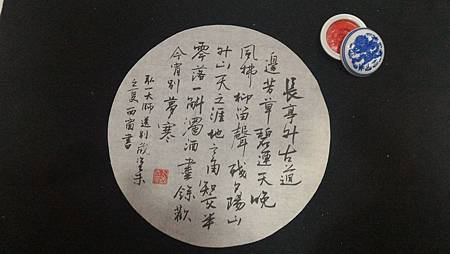 長亭外古道
邊芳草碧連天晚
風拂柳笛聲殘夕陽山
外山天之涯地之角知交半
零落一斛濁酒盡餘歡
今宵別夢寒
弘一大師送別歲次乙未
之夏雨窗書